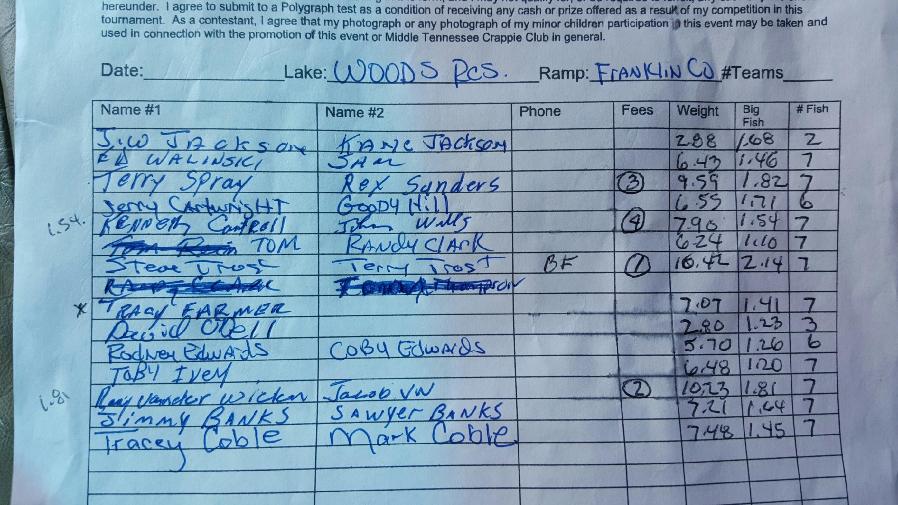 hereunder. I agree to submit to a Polygraph test as a condition of receiving any cash or prize offered as a result of my competition in this
tournament. As a contestant, I agree that my photograph or any photograph of my minor children participation in this event may be taken and
used in connection with the promotion of this event or Middle Tennessee Crappie Club in general.
Date: Lake: WOODS RES. Ramp: FRANKLIN CO #Teams
Name #1 Name #2 Phone Fees Weight Big Fish # Fish
J.W JACKSON KANE JACKSON 2.88 1.68 2
ED WALINSKI SAM 6.43 1.46 7
Terry Spray Rex Sanders 3 9.59 1.82 7
Jerry CartwrigHT GooDY Hill 6.55 1.71 6
1.54. KENNETH Cantrell John Wills 4 7.90 1.54 7
TOM RANDY CLARK 6.24 1.10 7
Steve Trost Terry Trost BF 1 10.42 2.14 7
* TRACY FARMER 7.07 1.41 7
David Odell 2.80 1.23 3
Rodney Edwards COBY Edwards 5.70 1.26 6
TOBY Ivey 6.48 1.20 7
1.81 Ray Jacob VW 2 10.23 1.81 7
Jimmy BANKS SAWYER BANKS 7.21 1.64 7
Tracey Coble Mark Coble 7.48 1.45 7